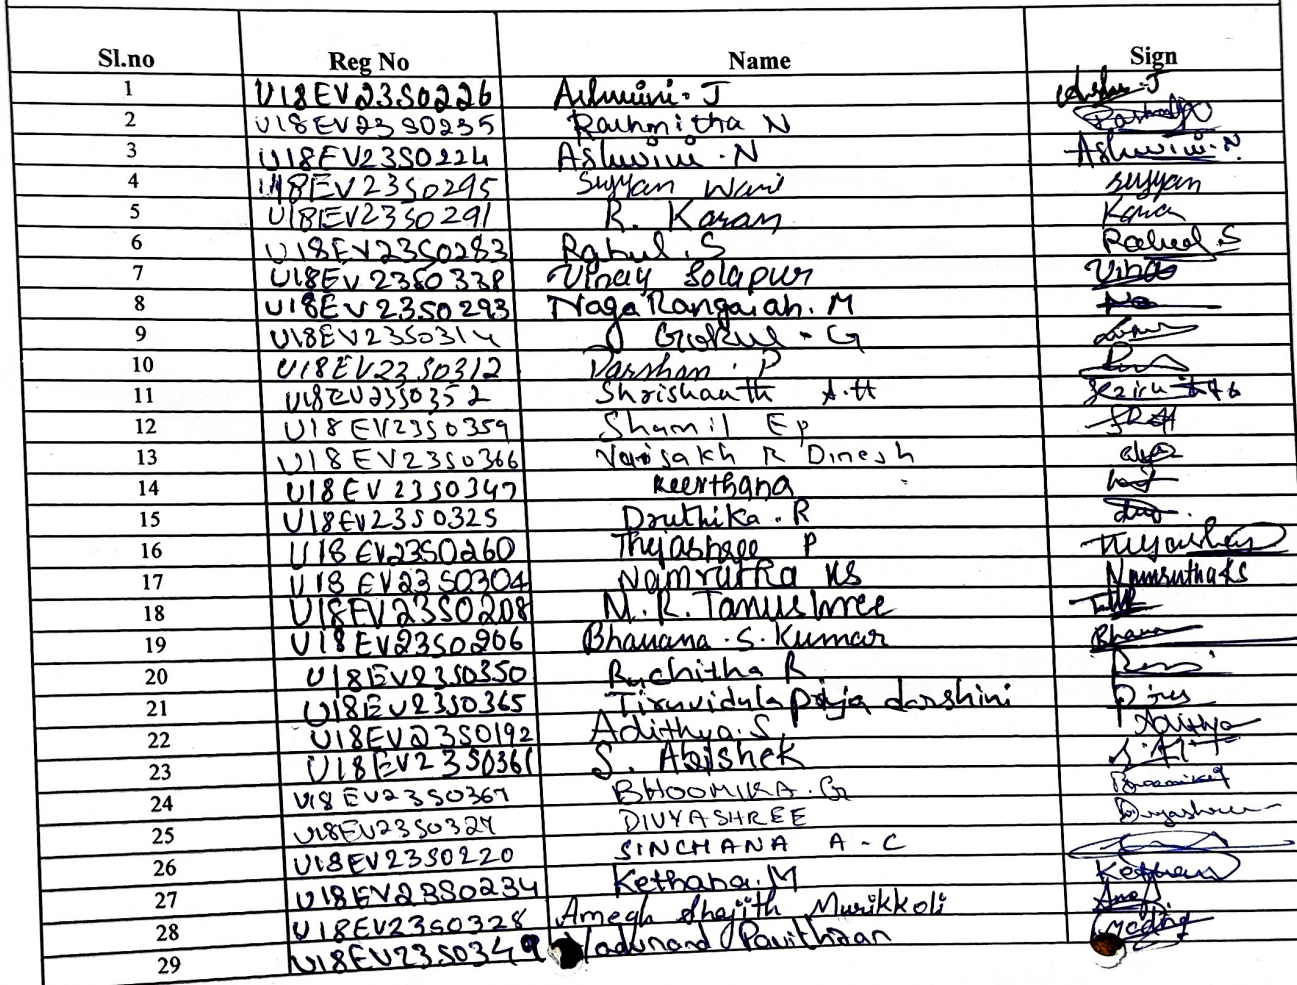 Sl.no Reg No Name Sign
1 U18EV23S0226 Ashwini. J
2 U18EV23S0235 Rashmitha N
3 U18EV23S0224 Ashwini. N Ashwini. N
4 U18EV23S0295 Sufyan Wani sufyan
5 U18EV23S0291 R. Karan Karan
6 U18EV23S0283 Rahul. S Rahul. S
7 U18EV23S0338 Vinay Solapur
8 U18EV23S0293 Naga Rangaiah. M
9 U18EV23S0314 Gokul - G
10 U18EV23S0312 Darshan. P
11 U18EV23S0352 Shrishaath A.H
12 U18EV23S0359 Shamil Ep
13 U18EV23S0366 Vaisakh R Dinesh
14 U18EV23S0347 Keerthana
15 U18EV23S0325 Druthika. R
16 U18EV23S0260 Thejashree P
17 U18EV23S0304 Namrutha KS Namrutha KS
18 U18EV23S0208 M. R. Tanushree
19 U18EV23S0206 Bhavana. S. Kumar
20 U18EV23S0350 Ruchitha R
21 U18EV23S0365 Tiruvidula priya darshini
22 U18EV23S0192 Adithya. S Adithya
23 U18EV23S0361 S. Abishek
24 U18EV23S0367 BHOOMIKA. G
25 U18EV23S0327 DIVYASHREE Divyashree
26 U18EV23S0220 SINCHANA A - C
27 U18EV23S0234 Kethana. M
28 U18EV23S0328 Amegh Shajith Murikkoli
29 U18EV23S0349 Yadunand Pavithran